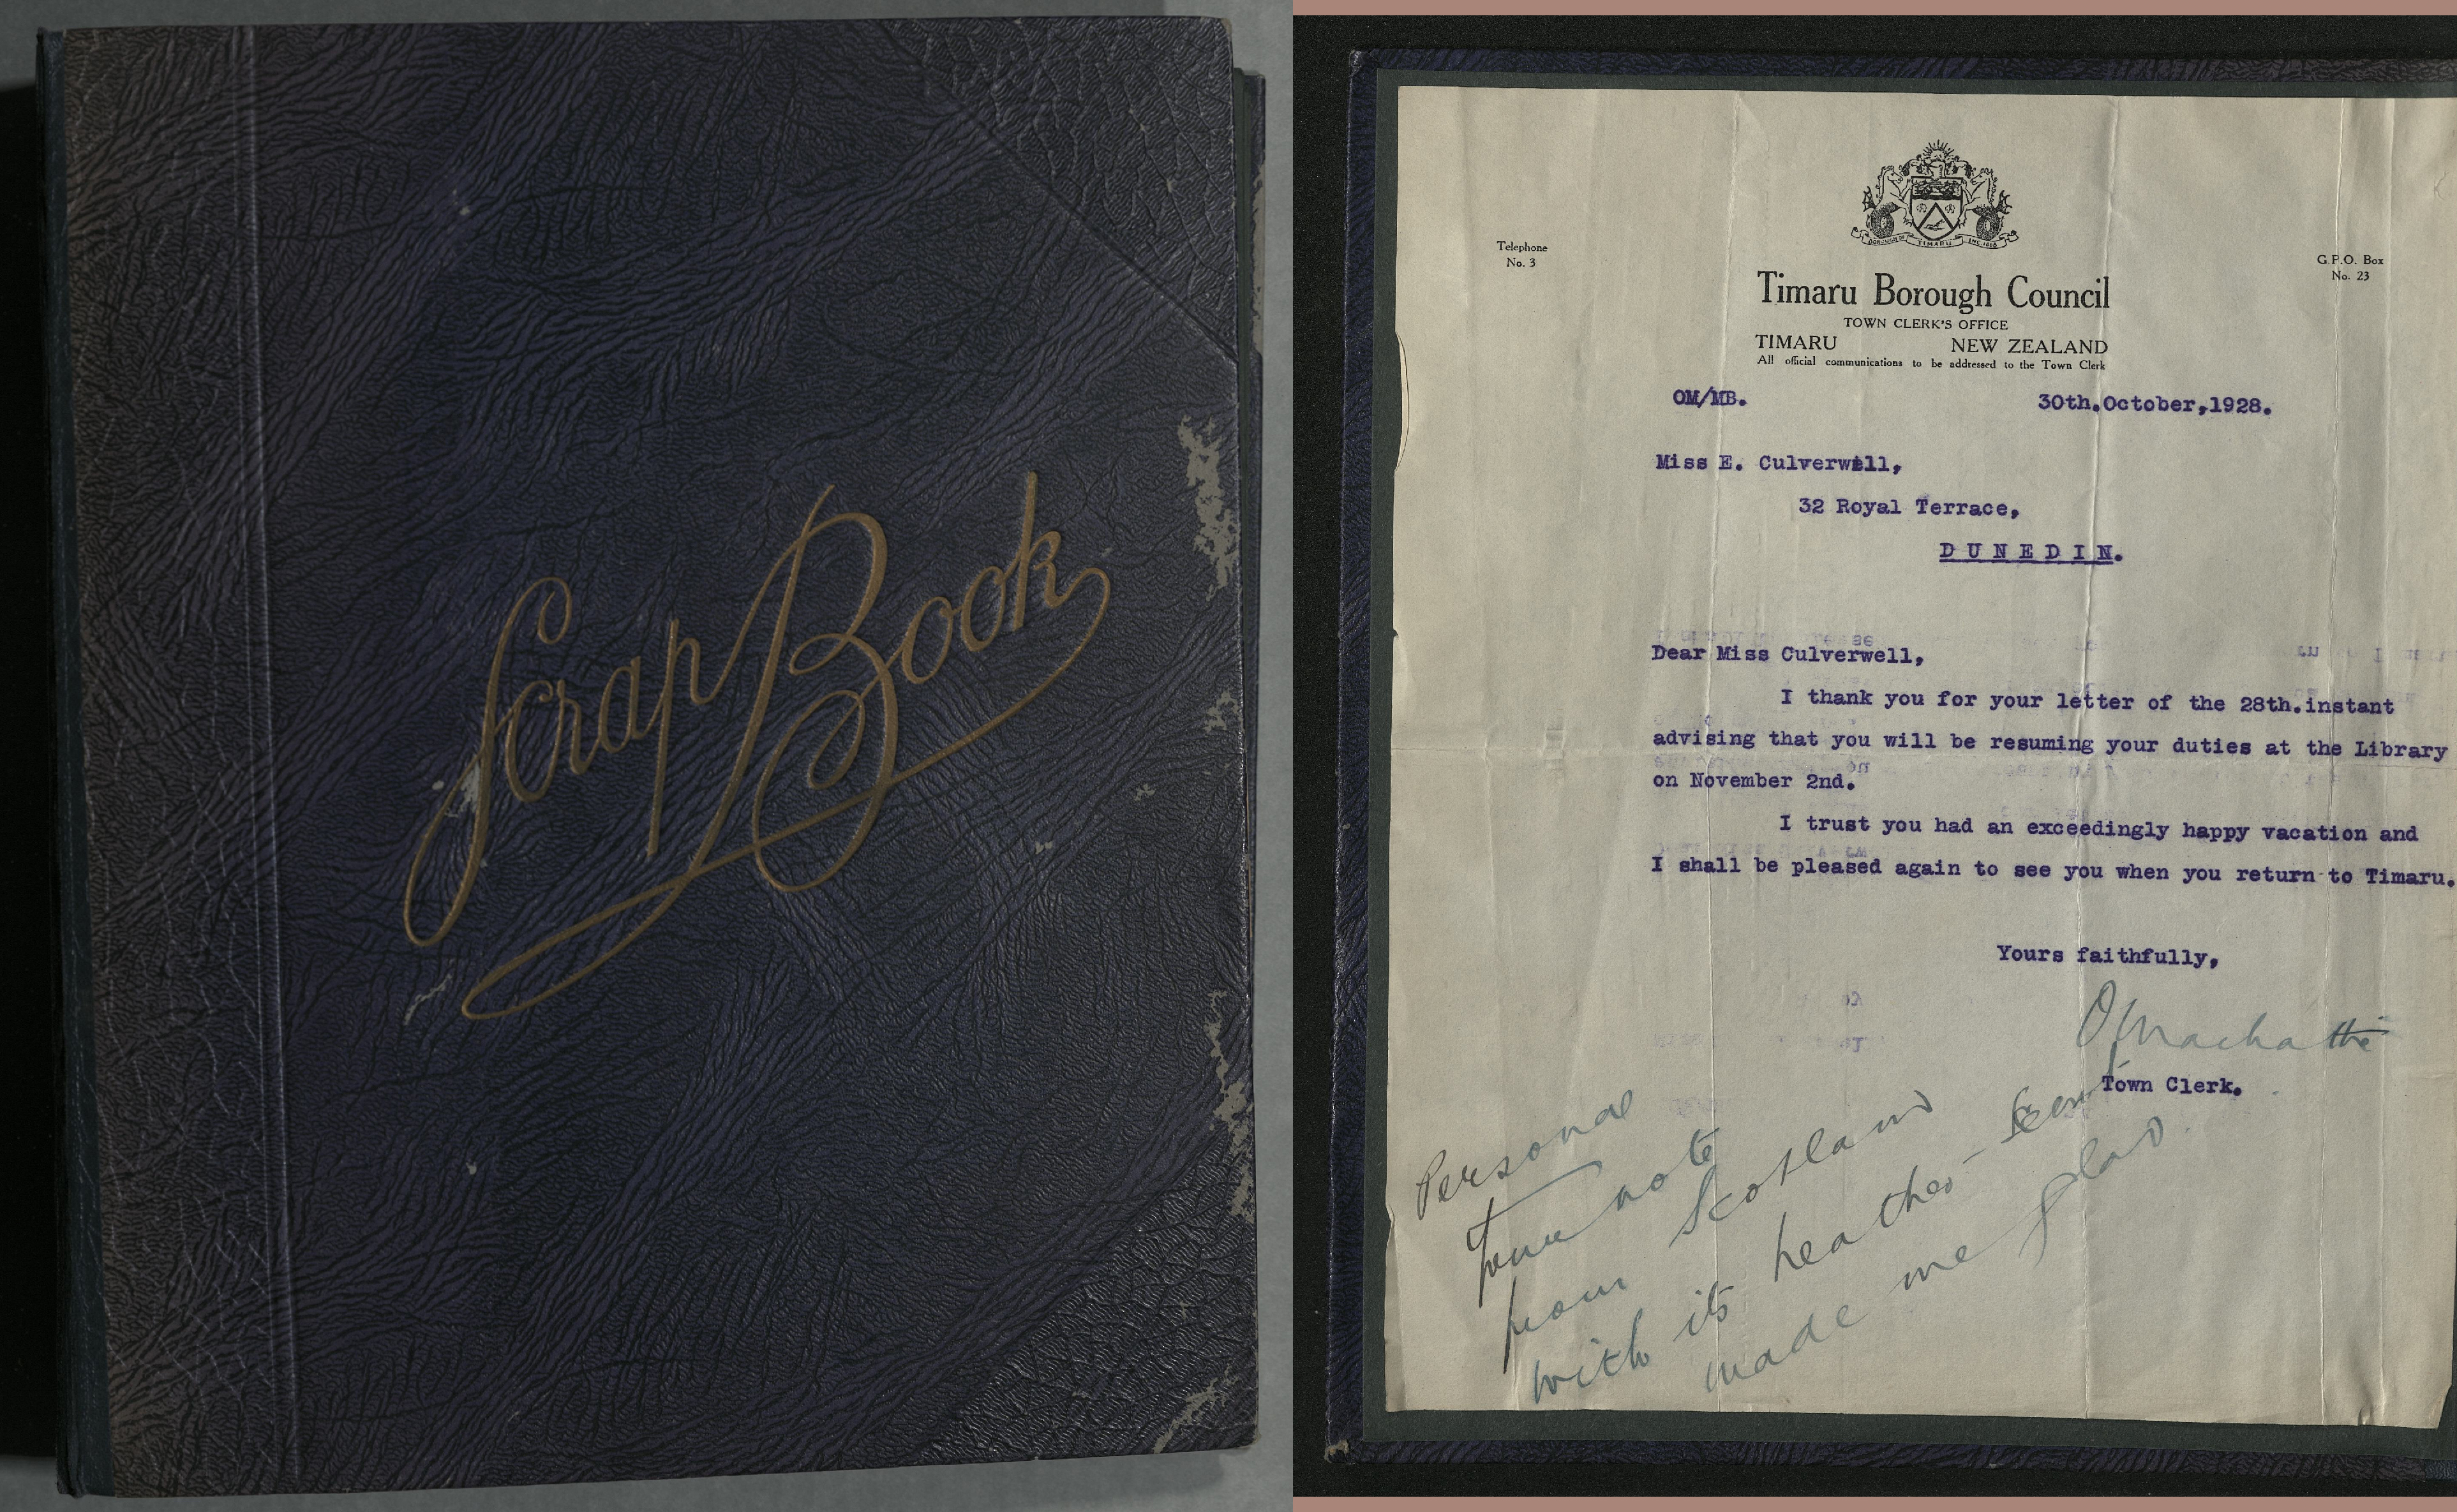 Scrap Book
BOROUGH OF TIMARU INC. 1868
Telephone
No. 3
G.P.O. Box
No. 23
Timaru Borough Council
TOWN CLERK'S OFFICE
TIMARU NEW ZEALAND
All official communications to be addressed to the Town Clerk
OM/MB.
30th.October,1928.
Miss E. Culverwell,
32 Royal Terrace,
DUNEDIN.
Dear Miss Culverwell,
I thank you for your letter of the 28th.instant
advising that you will be resuming your duties at the Library
on November 2nd.
I trust you had an exceedingly happy vacation and
I shall be pleased again to see you when you return to Timaru.
Yours faithfully,
Town Clerk.
Personal
note
from Scotland
with its heather
made me glad.